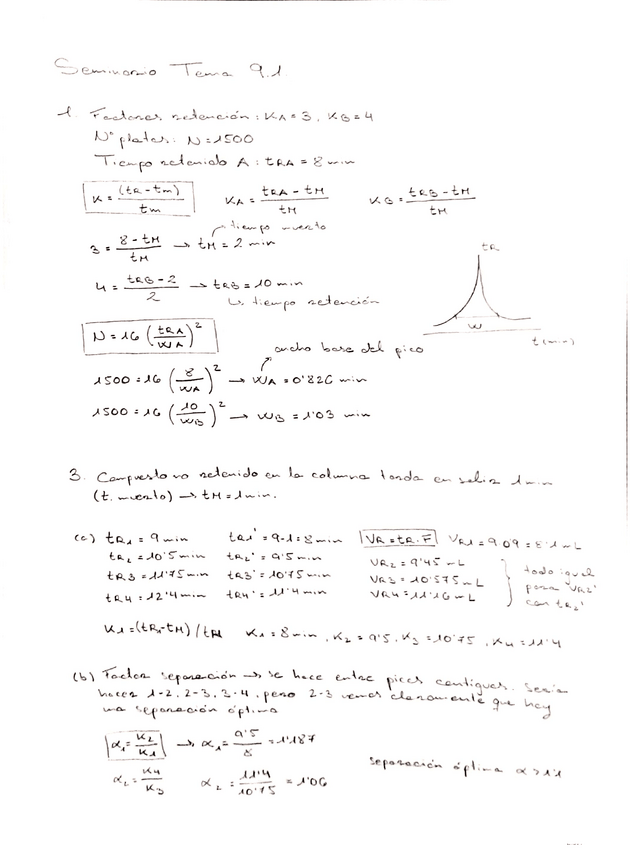 Seminario Tema 9.1.
1. Factores retención: KA=3, KB=4
Nº platos: N=1500
Tiempo retenido A: tRA = 8 min
K = (tR-tm)/tm KA = tRA-tM/tM KB = tRB-tM/tM
tiempo muerto
3 = 8-tM/tM → tM = 2 min
tR
4 = tRB-2/2 → tRB = 10 min
↳ tiempo retención
W
t(min)
N = 16 (tRA/WA)²
ancho base del pico
1500 = 16 (8/WA)² → WA = 0'826 min
1500 = 16 (10/WB)² → WB = 1'03 min
3. Compuesto no retenido en la columna tarda en salir 1 min
(t. muerto) → tM = 1 min.
(a) tR1 = 9 min tR1' = 9-1 = 8 min VR = tR·F VR1 = 9·0'9 = 8'1 mL
tR2 = 10'5 min tR2' = 9'5 min VR2 = 9'45 mL
tR3 = 11'75 min tR3' = 10'75 min VR3 = 10'575 mL
tR4 = 12'4 min tR4' = 11'4 min VR4 = 11'16 mL
todo igual
para VR2'
con tR2'
K1 = (tR1-tM)/tM K1 = 8 min, K2 = 9'5, K3 = 10'75, K4 = 11'4
(b) Factor separación → se hace entre picos contiguos. Sería
hacer 1-2, 2-3, 3-4, pero 2-3 vemos claramente que hay
una separación óptima
α1 = K2/K1 → α1 = 9'5/8 = 1'187
α2 = K4/K3 α2 = 11'4/10'75 = 1'06
separación óptima α > 1'1